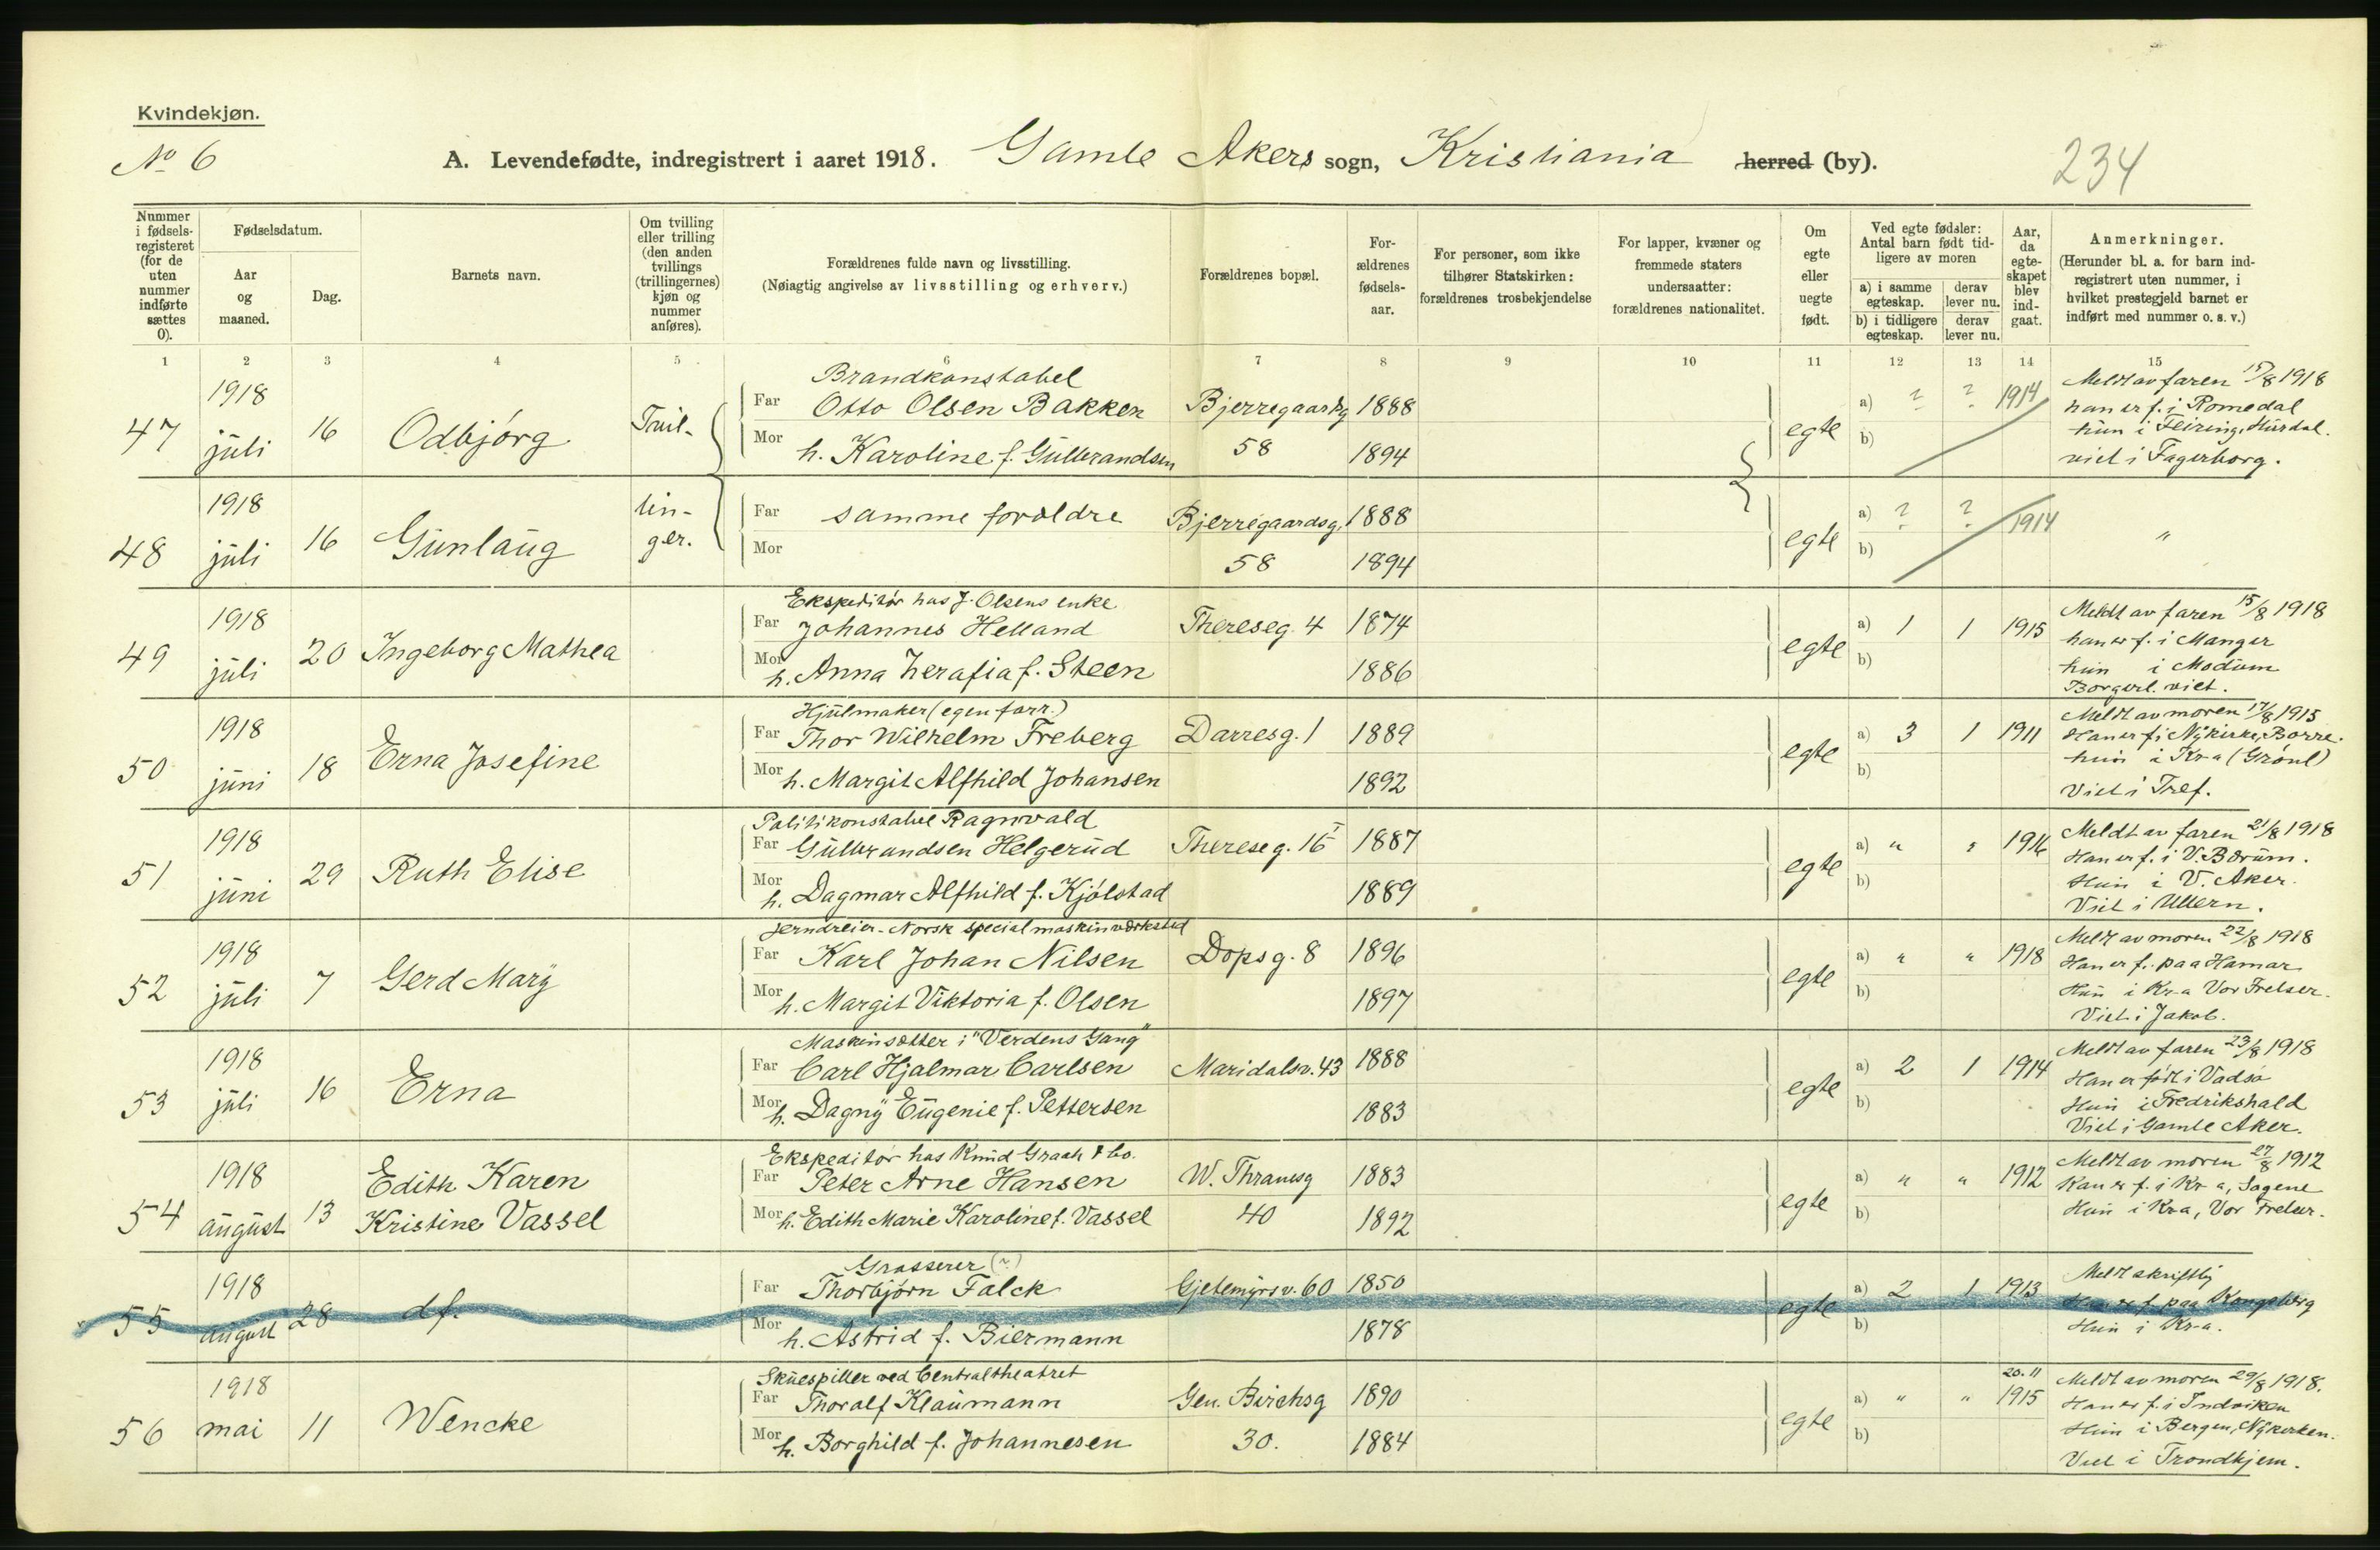 Kvindekjøn.
No 6
A. Levendefødte, indregistrert i aaret 1918. Gamle Akers sogn, Kristiania herred (by).
234
Nummer i fødsels-registeret (for de uten nummer indførte sættes 0).
Fødselsdatum.
Aar og maaned.
Dag.
Barnets navn.
Om tvilling eller trilling (den anden tvillings (trillingernes) kjøn og nummer anføres).
Forældrenes fulde navn og livsstilling.
(Nøiagtig angivelse av livsstilling og erhverv.)
Forældrenes bopæl.
For-ældrenes fødsels-aar.
For personer, som ikke tilhører Statskirken: forældrenes trosbekjendelse
For lapper, kvæner og fremmede staters undersaatter: forældrenes nationalitet.
Om egte eller uegte født.
Ved egte fødsler: Antal barn født tid-ligere av moren
a) i samme egteskap.
derav lever nu.
b) i tidligere egteskap.
derav lever nu.
Aar, da egte-skapet blev ind-gaat.
Anmerkninger.
(Herunder bl. a. for barn ind-registrert uten nummer, i hvilket prestegjeld barnet er indført med nummer o. s. v.)
1 2 3 4 5 6 7 8 9 10 11 12 13 14 15
47 1918 juli 16 Odbjørg Tvil-
Brandkonstabel
Far Otto Olsen Bakken Bjerregaardsg 1888
Mor h. Karoline f. Gulbrandsen 58 1894
egte a) ? ? 1914
b)
Meldt av faren 15/8 1918
han er f. i Romedal
hun i Feiring, Hurdal.
viet i Fagerborg.
48 1918 juli 16 Gunlaug lin-
ger.
Far samme forældre Bjerregaardsg. 1888
Mor 58 1894
egte a) ? ? 1914
b)
"
49 1918 juli 20 Ingeborg Mathea
Ekspeditør hos J. Olsens enke
Far Johannes Helland Thereseg. 4 1874
Mor h. Anna Zerafia f. Steen 1886
egte a) 1 1 1915
b)
Meldt av faren 15/8 1918
han er f. i Manger
hun i Modum
Borgerl. viet.
50 1918 juni 18 Erna Josefine
Hjulmaker (egen forr.)
Far Thor Wilhelm Freberg Darresg. 1 1889
Mor h. Margit Alfhild Johansen 1892
egte a) 3 1 1911
b)
Meldt av moren 17/8 1915
Han er f. i Nykirke, Borre.
hun i Kr-a (Grønl)
Viet i Tref.
51 1918 juni 29 Ruth Elise
Politikonstabel Ragnvald
Far Gulbrandsen Helgerud Thereseg. 16 I 1887
Mor h. Dagmar Alfhild f. Kjølstad 1889
egte a) " " 1916
b)
Meldt av faren 21/8 1918
Han er f. i V. Bærum.
Hun i V. Aker.
Viet i Ullern.
52 1918 juli 7 Gerd Mary
Jerndreier - Norsk specialmaskinværksted
Far Karl Johan Nilsen Dopsg. 8 1896
Mor h. Margit Viktoria f. Olsen 1897
egte a) " " 1918
b)
Meldt av moren 22/8 1918
Han er f. paa Hamar
Hun i Kr-a Vor Frelser.
Viet i Jakob.
53 1918 juli 16 Erna
Maskinsætter i "Verdens Gang"
Far Carl Hjalmar Carlsen Maridalsv. 43 1888
Mor h. Dagny Eugenie f. Pettersen 1883
egte a) 2 1 1914
b)
Meldt av faren 23/8 1918
Han er født i Vadsø
Hun i Fredrikshald
Viet i Gamle Aker.
54 1918 august 13 Edith Karen
Kristine Vassel
Ekspeditør hos Knud Graah & Co.
Far Peter Arne Hansen W. Thranesg 1883
Mor h. Edith Marie Karoline f. Vassel 40 1892
egte a) " " 1912
b)
Meldt av moren 27/8 1912
Han er f. i Kr-a, Sagene
Hun i Kr-a, Vor Frelser.
55 1918 august 28 df.
Grosserer (?)
Far Thorbjørn Falck Gjetemyrsv. 60 1850
Mor h. Astrid f. Biermann 1878
egte a) 2 1 1913
b)
Meldt skriftlig
Han er f. paa Kongsberg
Hun i Kr-a.
56 1918 mai 11 Wencke
Skuespiller ved Centraltheatret
Far Thoralf Klaumann Gen. Birchsg 1890
Mor h. Borghild f. Johannesen 30. 1884
egte a) " " 20.11 1915
b)
Meldt av moren 29/8 1918.
Han er f. i Indviken
Hun i Bergen, Nykirken.
Viet i Trondhjem.